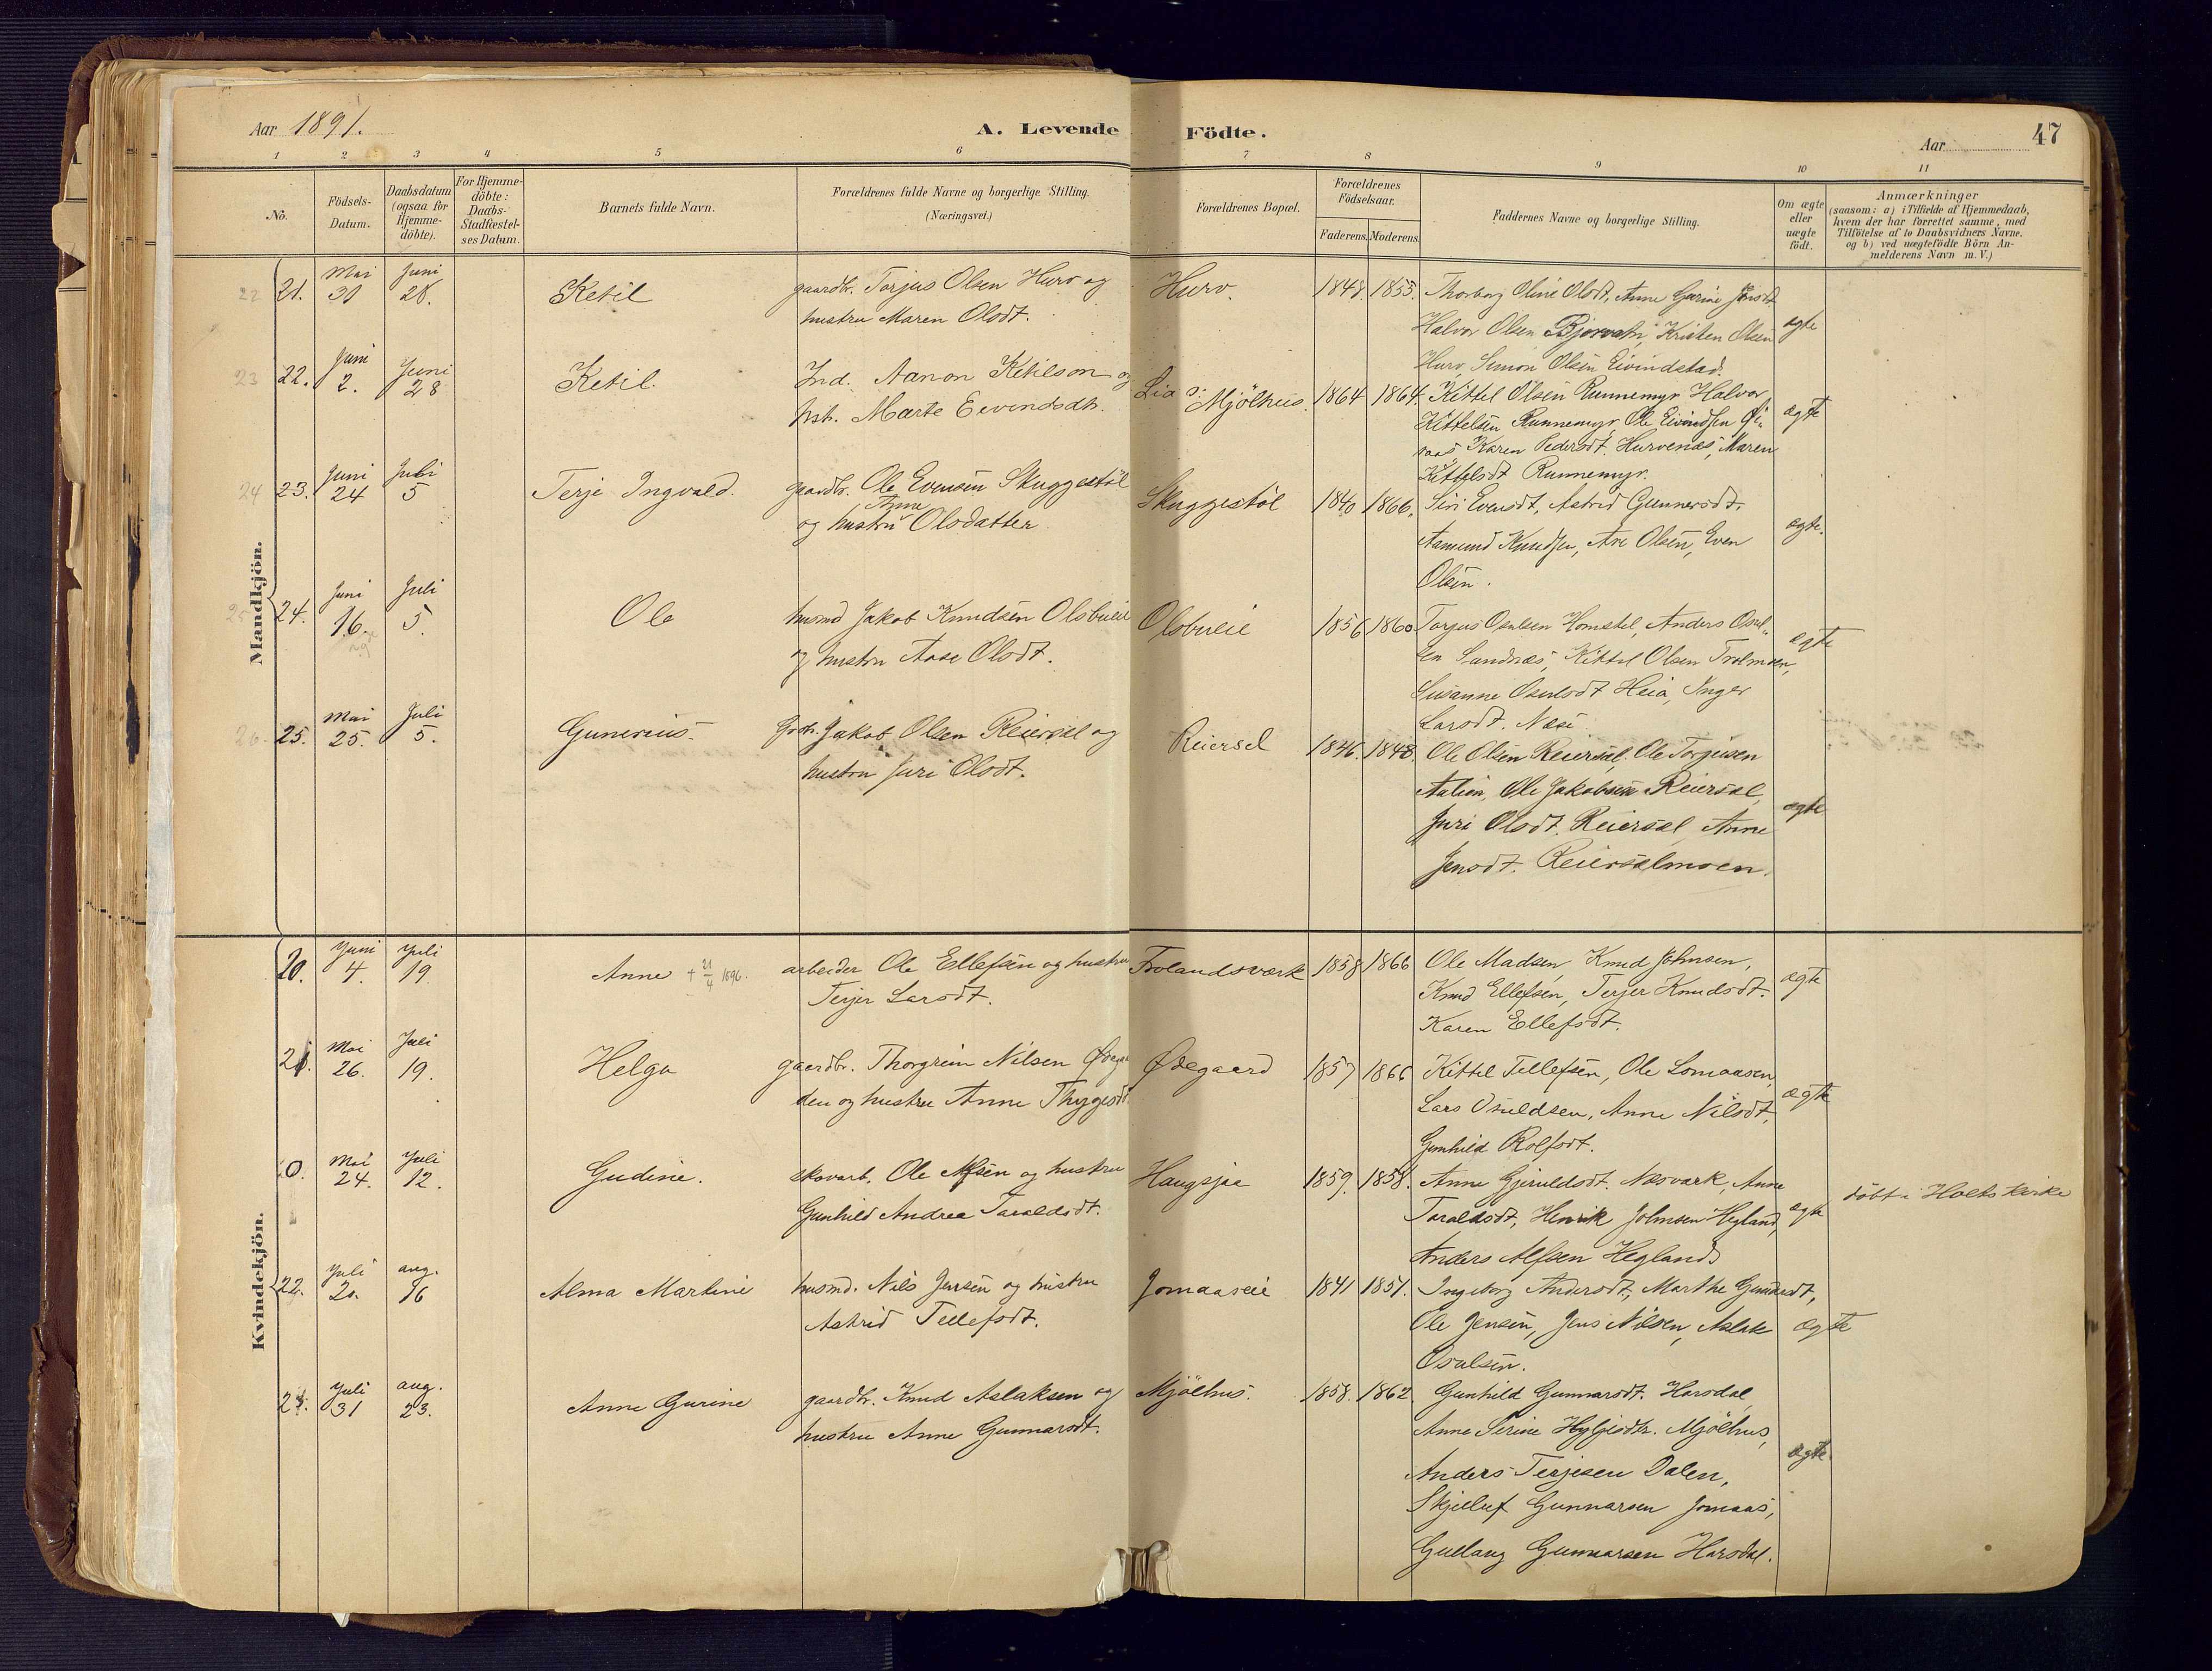 Aar 1891.
A. Levende Födte.
Aar
47
1 2 3 4 5 6 7 8 9 10 11
No.
Födsels-Datum.
Daabsdatum (ogsaa for Hjemme-döbte).
For Hjemme-döbte: Daabs-Stadfæstel-ses Datum.
Barnets fulde Navn.
Forældrenes fulde Navne og borgerlige Stilling. (Næringsvei.)
Forældrenes Bopæl.
Forældrenes Födselsaar.
Faderens. Moderens.
Faddernes Navne og borgerlige Stilling.
Om ægte eller uægte født.
Anmærkninger
(saasom: a) i Tilfælde af Hjemmedaab,
hvem der har forrettet samme, med
Tilföielse af to Daabsvidners Navne,
og b) ved uægtefödte Börn An-
melderens Navn m. V.)
Mandkjön.
22 21. Mai 30 Juni 28. Ketil gaardbr. Torjus Olsen Hurv og Hurv. 1848 1855. Thorborg Oline Olsdt, Anne Gurine Jensdt
hustru Maren Olsdt. Halvor Olsen Bjorvatn, Kristen Olsen ægte
Hurv, Simon Olsen Eivindstad.
23 22. Juni 2. Juni 28 Ketil. Ind. Aanon Ketilson og Lia i Mjölhus. 1864 1864. Kittel Olsen Runnemyr Halvor
hst. Marte Eevindsdtr. Kittelsen Runnemyr, Ole Eivindsen ægte
Karen Pedersdt. Hurvenæs, Maren
Kittelsdt Runnemyr.
24 23. Juni 24 Juli 5 Terje Ingvald. gaardbr. Ole Evensen Skuggestöl Skuggestöl 1840 1866. Siri Evensdt, Astrid Gunnersdt.
og hustru Anne Olsdatter Aamund Knudsen, Ave Olsen, Even ægte.
Olsen.
25 24. Juni 16. Juli 5. Ole husmd Jakob Knudsen Olsbueie Olsbueie 1856 1860 Torjus Osulsen Homstöl, Anders Osul-
og hustru Aase Olsdt. sen Sundnæs, Kittel Olsen Trolmoen, ægte
Susanne Osulsdt Heia, Inger
Larsdt. Næse
26. 25. Mai 25. Juli 5. Gunerius. Grdbr. Jakob Olsen Reiersel og Reiersel 1846. 1848. Ole Olsen Reiersel, Ole Torjusen
hustru Juri Olsdt. Ole Jakobsen Reiersel,
Juri Olsdt. Reiersel, Anne ægte
Jensdt. Reierselmoen.
Kvindekjön.
20. Juni 4. Juli 19. Anne + 21/4 1896. arbeider Ole Ellefsen og hustru Frolandsværk 1858 1866 Ole Madsen, Knud Johnsen,
Terjer Larsdt. Knud Ellefsen, Terjer Knudsdt. ægte
Karen Ellefsdt.
21. Mai 26. Juli 19. Helga gaardbr. Thorgrim Nilsen Ødegaar Ødegaard 1857 1866 Kittel Tellefsen, Ole Lomaasen,
den og hustru Anne Thygesdt Lars Osuldsen, Anne Nilsdt, ægte
Gunhild Rolfsdt.
0. Mai 24. Juli 12. Gudine. skovarb. Ole Alfsen og hustru Haugsjaa 1859. 1858. Anne Gjeruldsdt. Næsværk, Anne
Gunhild Andrea Taraldsdt. Taraldsdt, Henrik Johnsen Hegland, ægte døbt i Holts kirke
Anders Alfsen Hegland
22. Juli 20. aug. 16 Alma Martine husmd. Nils Jensen og hustru Jomaaseie 1841 1851. Ingeborg Andersdt, Marthe Gundersdt,
Astrid Tellefsdt. Ole Jensen, Jens Nilsen, Aslak ægte
Osulsen.
23. Juli 31 aug. 23. Anne Gurine gaardbr. Knud Aslaksen og Mjölhus. 1858. 1862 Gunhild Gunnarsdt. Harsdal,
hustru Anne Gunnarsdt. Anne Serine Hyljesdtr. Mjölhus,
Anders Terjesen Dalen, ægte.
Skjelluf Gunnarsen Jomaas,
Gullaug Gunnarsen Harsdal.